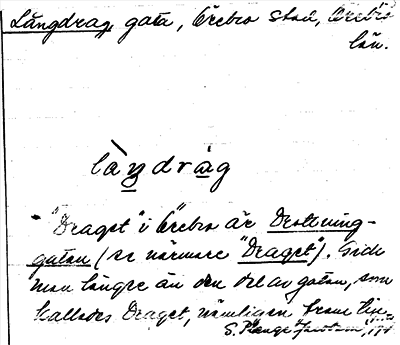 Långdrag, gata, Örebro stad, Örebro
län.
làŋdràg
"Draget" i Örebro är Drottning-
gatan (se närmare "Draget"). Gick
man längre än den del av gatan, som
kallades Draget, nämligen fram
S.